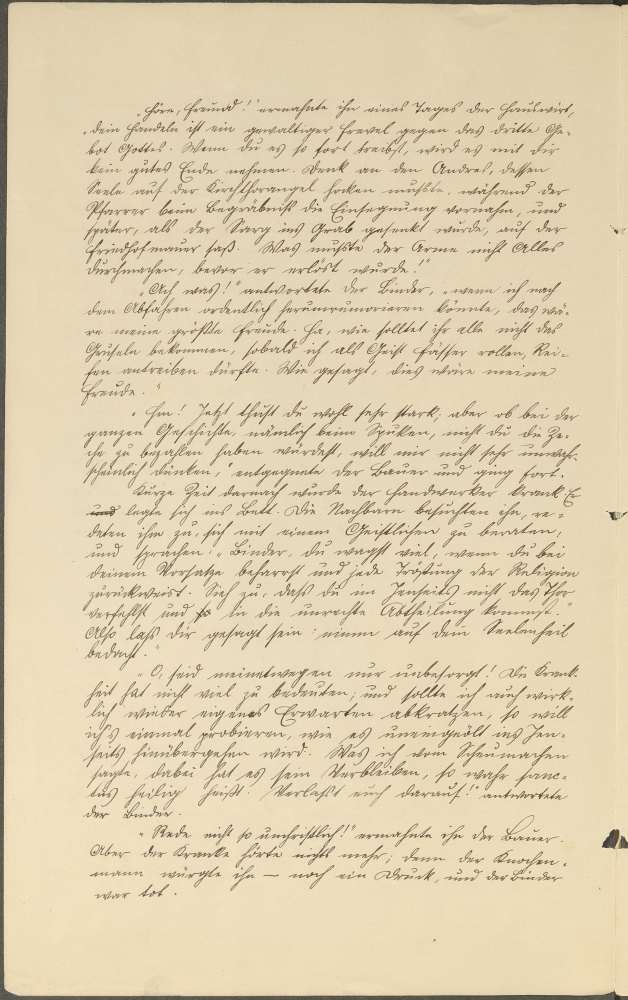 „Höre, Freund!" ermahnte ihn eines Tages der Hauswirt,
„dein Handeln ist ein gewaltiger Frevel gegen das dritte Ge-
bot Gottes. Wenn du es so fort treibst, wird es mit dir
kein gutes Ende nehmen. Denk an den Andres, dessen
Seele auf der Kirchthorangel hocken mußte, während der
Pfarrer beim Begräbniß die Einsegnung vornahm, und
später, als der Sarg ins Grab gesenkt wurde, auf der
Friedhofmauer saß. Was mußte der Arme nicht Alles
durchmachen, bevor er erlöst wurde!"
„Ach was!" antwortete der Binder, „wenn ich nach
dem Abfahren ordentlich herumrumoren könnte, das wä-
re meine größte Freude. Ha, wie solltet ihr alle nicht das
Gruseln bekommen, sobald ich als Geist Fässer rollen, Rei-
fen antreiben dürfte. Wie gesagt, dies wäre meine
Freude."
„Hm! Jetzt thust du wohl sehr stark; aber ob bei der
ganzen Geschichte, nämlich beim Spuken, nicht du die Ze-
che zu bezahlen haben würdest, will mir nicht sehr unwahr-
scheinlich dünken," entgegnete der Bauer und ging fort.
Kurze Zeit darnach wurde der Handwerker krank. Er
und legte sich ins Bett. Die Nachbarn besuchten ihn, re-
deten ihm zu, sich mit einem Geistlichen zu beraten,
und sprachen: „Binder, du wagst viel, wenn du bei
deinem Vorsatze beharrst und jede Tröstung der Religion
zurückweist. Sieh zu, daß du im Jenseits nicht das Thor
verfehlst und so in die unrechte Abtheilung kommst."
Also laß dir gesagt sein: nimm auf dein Seelenheil
bedacht."
„O, seid meinetwegen nur unbesorgt! Die Krank-
heit hat nicht viel zu bedeuten; und sollte ich auch wirk-
lich wieder eigenes Erwarten abkratzen, so will
ich's einmal probieren, wie es uneingeölt ins Jen-
seits hinübergehen wird. Was ich vom
sagte, dabei hat es sein Verbleiben, so wahr sanc-
tus heilig heißt. Verlaßt euch darauf!" antwortete
der Binder.
„Rede nicht so unchristlich!" ermahnte ihn der Bauer.
Aber der Kranke hörte nichts mehr; denn der Knochen-
mann würgte ihn — noch ein Druck, und der Binder
war tot.